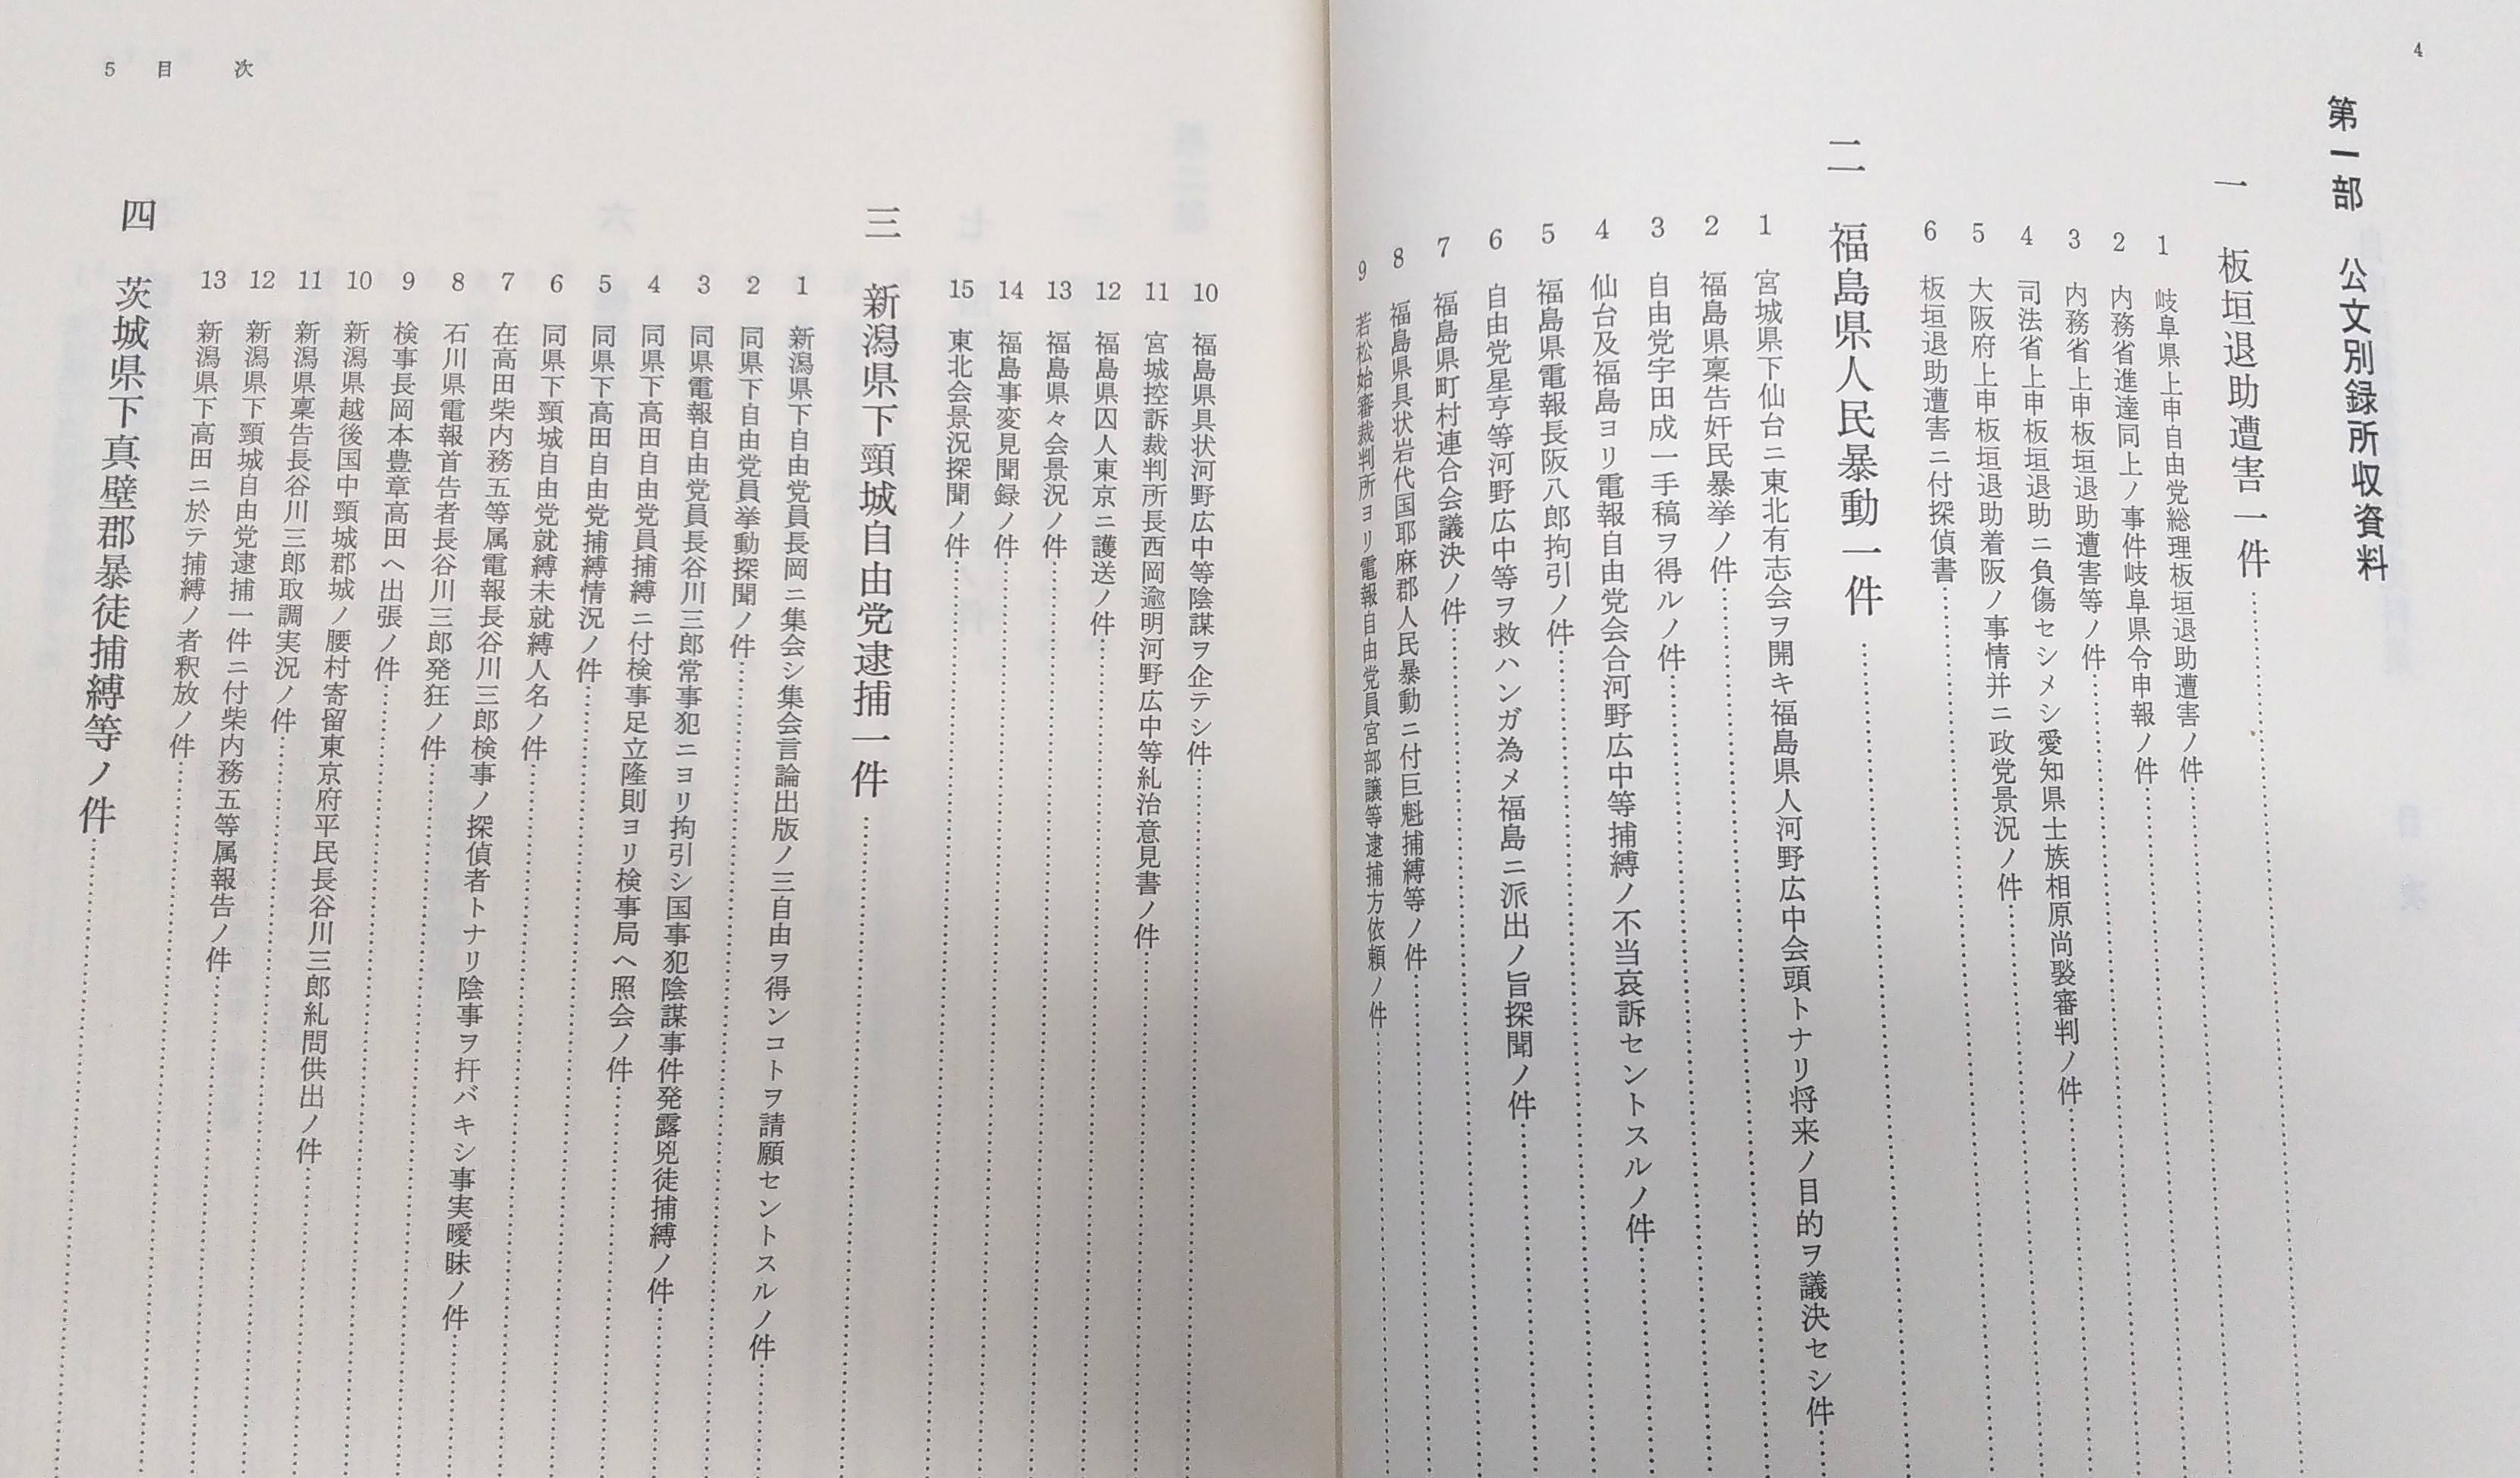 4
第一部 公文別録所収資料
一 板垣退助遭害一件
1 岐阜県上申自由党総理板垣退助遭害ノ件
2 内務省進達同上ノ事件岐阜県令申報ノ件
3 内務省上申板垣退助遭害等ノ件
4 司法省上申板垣退助ニ負傷セシメシ愛知県士族相原尚褧審判ノ件
5 大阪府上申板垣退助着阪ノ事情并ニ政党景況ノ件
6 板垣退助遭害ニ付探偵書
二 福島県人民暴動一件
1 宮城県下仙台ニ東北有志会ヲ開キ福島県人河野広中会頭トナリ将来ノ目的ヲ議決セシ件
2 福島県稟告奸民暴挙ノ件
3 自由党宇田成一手稿ヲ得ルノ件
4 仙台及福島ヨリ電報自由党会合河野広中等捕縛ノ不当哀訴セントスルノ件
5 福島県電報長阪八郎拘引ノ件
6 自由党星亨等河野広中等ヲ救ハンガ為メ福島ニ派出ノ旨探聞ノ件
7 福島県町村連合会議決ノ件
8 福島県具状岩代国耶麻郡人民暴動ニ付巨魁捕縛等ノ件
9 若松始審裁判所ヨリ電報自由党員宮部譲等逮捕方依頼ノ件
5 目次
10 福島県具状河野広中等陰謀ヲ企テシ件
11 宮城控訴裁判所長西岡逾明河野広中等糺治意見書ノ件
12 福島県囚人東京ニ護送ノ件
13 福島県々会景況ノ件
14 福島事変見聞録ノ件
15 東北会景況探聞ノ件
三 新潟県下頸城自由党逮捕一件
1 新潟県下自由党員長岡ニ集会シ集会言論出版ノ三自由ヲ得ンコトヲ請願セントスルノ件
2 同県下自由党員挙動探聞ノ件
3 同県電報自由党員長谷川三郎常事犯ニヨリ拘引シ国事犯陰謀事件発露兇徒捕縛ノ件
4 同県下高田自由党員捕縛ニ付検事足立隆則ヨリ検事局ヘ照会ノ件
5 同県下高田自由党捕縛情況ノ件
6 同県下頸城自由党就縛未就縛人名ノ件
7 在高田柴内務五等属電報長谷川三郎検事ノ探偵者トナリ陰事ヲ扞バキシ事実曖昧ノ件
8 石川県電報首告者長谷川三郎発狂ノ件
9 検事長岡本豊章高田ヘ出張ノ件
10 新潟県越後国中頸城郡城ノ腰村寄留東京府平民長谷川三郎糺問供出ノ件
11 新潟県稟告長谷川三郎取調実況ノ件
12 新潟県下頸城自由党逮捕一件ニ付柴内務五等属報告ノ件
13 新潟県下高田ニ於テ捕縛ノ者釈放ノ件
四 茨城県下真壁郡暴徒捕縛等ノ件